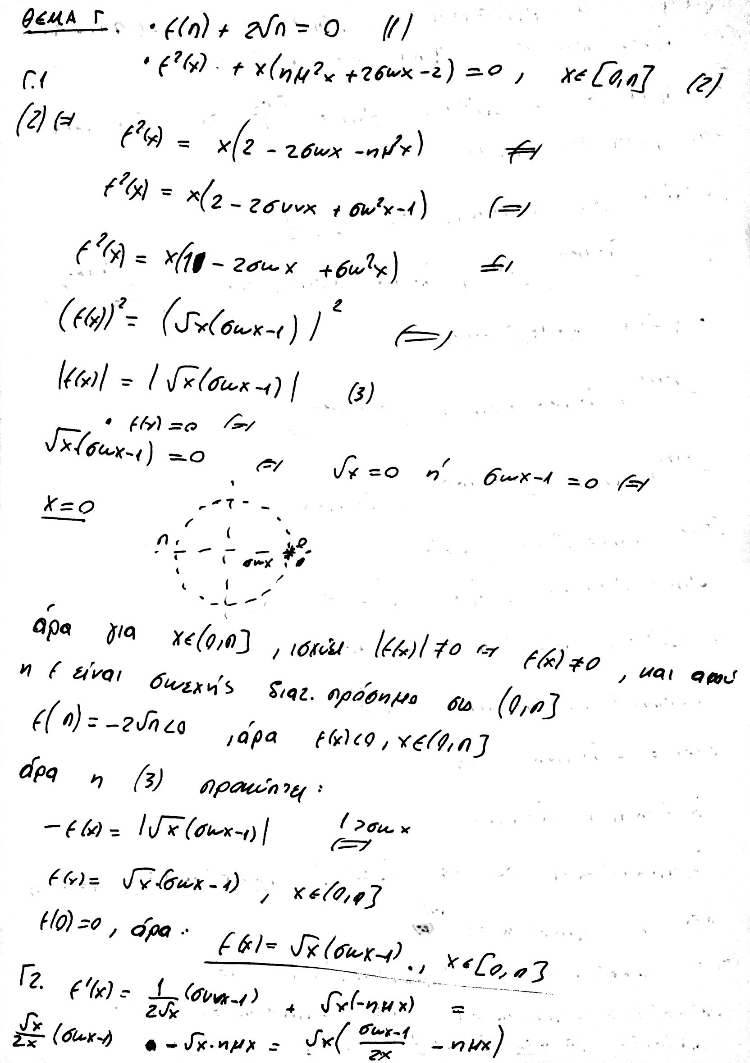 ΘΕΜΑ Γ. • f(π) + 2√π = 0 (1)
• f²(x) + x(ημ²x + 2συνx - 2) = 0 , x∈[0,π] (2)
Γ.1
(2) ⇔ f²(x) = x(2 - 2συνx - ημ²x) ⇔
f²(x) = x(2 - 2συνx + συν²x - 1) ⇔
f²(x) = x(1 - 2συνx + συν²x) ⇔
(f(x))² = (√x(συνx-1))² ⇔
|f(x)| = |√x(συνx-1)| (3)
• f(x) = 0 ⇔
√x(συνx-1) = 0 ⇔ √x = 0 ή συνx-1 = 0 ⇔
x=0
π συνx 0
άρα για x∈(0,π] , ισχύει |f(x)| ≠0 ⇔ f(x) ≠0 , και αφού
η f είναι συνεχής διατ. πρόσημο στο (0,π]
f(π) = -2√π<0 , άρα f(x)<0 , x∈(0,π]
άρα η (3) προκύπτει:
-f(x) = |√x(συνx-1)| 1>συνx ⇔
f(x) = √x(συνx-1) , x∈(0,π]
f(0)=0 , άρα: f(x) = √x(συνx-1) , x∈[0,π]
Γ2. f'(x) = 1/2√x (συνx-1) + √x(-ημx) =
√x/2x (συνx-1) - √x·ημx = √x( συνx-1/2x - ημx)